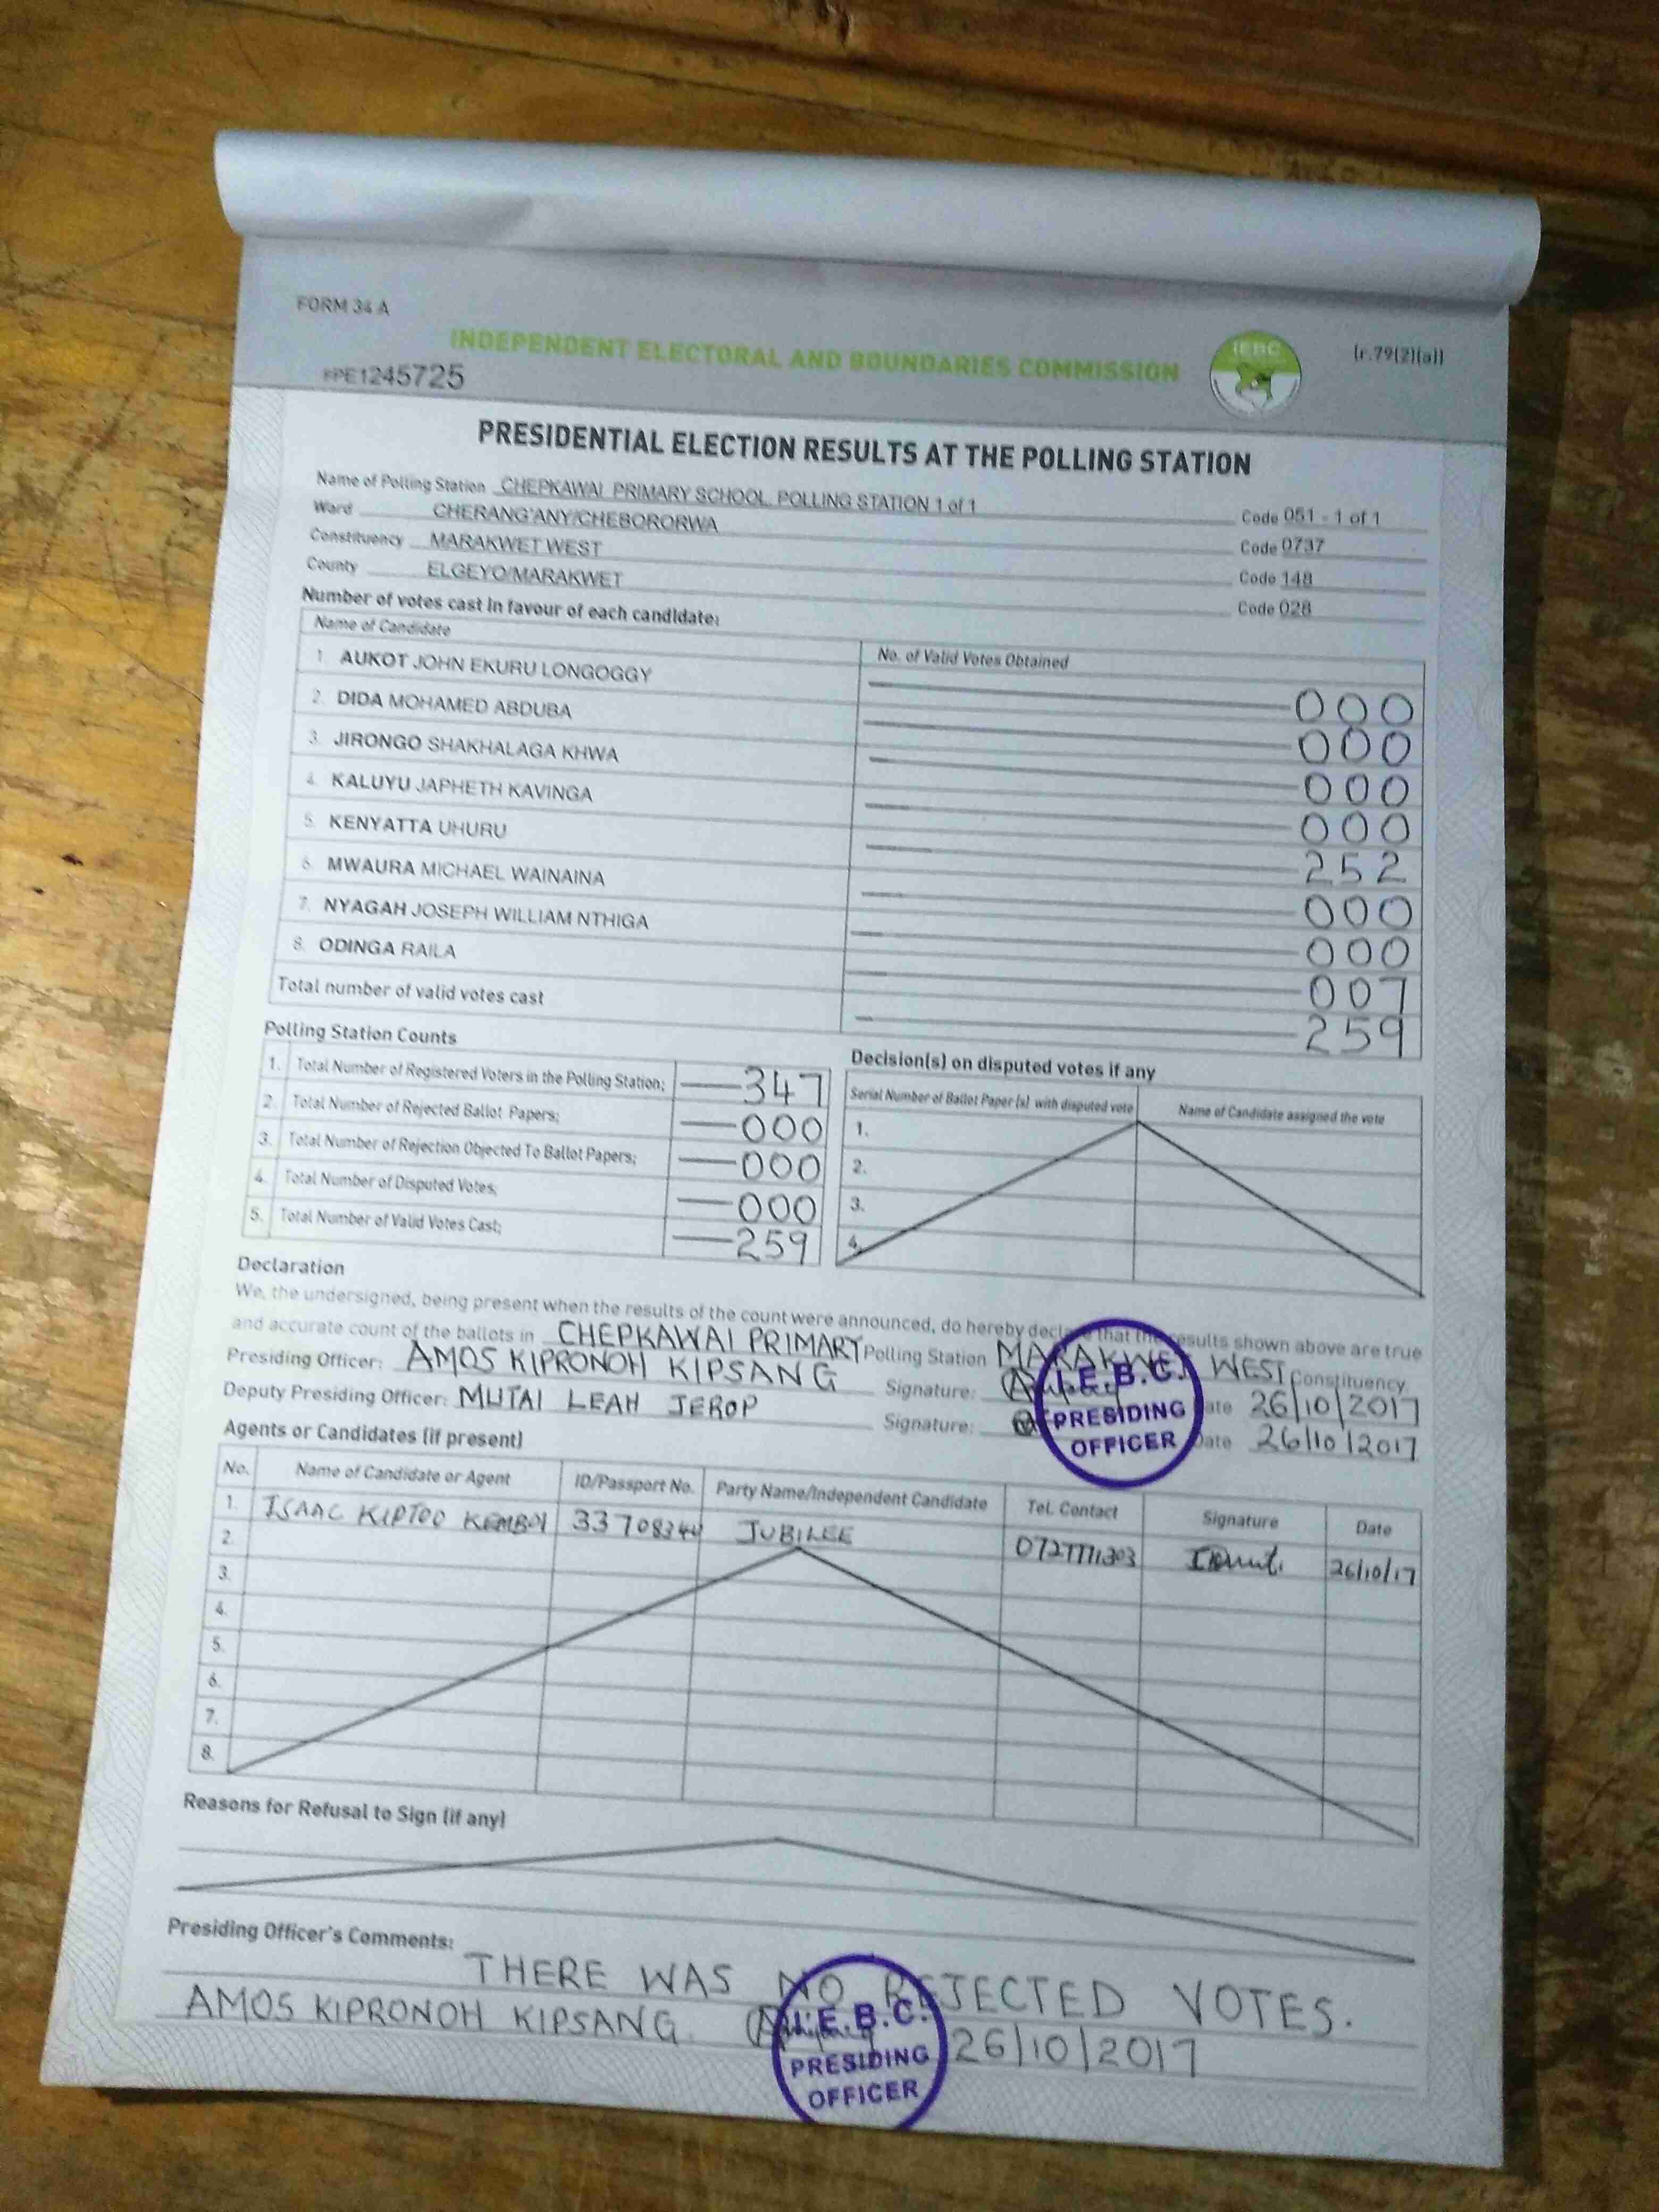 FORM 34 A
INDEPENDENT ELECTORAL AND BOUNDARIES COMMISSION
IEBC
(r.79(2)(a))
#PE1245725
PRESIDENTIAL ELECTION RESULTS AT THE POLLING STATION
Name of Polling Station CHEPKAWAI PRIMARY SCHOOL, POLLING STATION 1 of 1 Code 051 - 1 of 1
Ward CHERANG'ANY/CHEBORORWA Code 0737
Constituency MARAKWET WEST Code 148
County ELGEYO/MARAKWET Code 028
Number of votes cast in favour of each candidate:
Name of Candidate No. of Valid Votes Obtained
1. AUKOT JOHN EKURU LONGOGGY 000
2. DIDA MOHAMED ABDUBA 000
3. JIRONGO SHAKHALAGA KHWA 000
4. KALUYU JAPHETH KAVINGA 000
5. KENYATTA UHURU 252
6. MWAURA MICHAEL WAINAINA 000
7. NYAGAH JOSEPH WILLIAM NTHIGA 000
8. ODINGA RAILA 007
Total number of valid votes cast 259
Polling Station Counts
1. Total Number of Registered Voters in the Polling Station; 347
2. Total Number of Rejected Ballot Papers; 000
3. Total Number of Rejection Objected To Ballot Papers; 000
4. Total Number of Disputed Votes; 000
5. Total Number of Valid Votes Cast; 259
Decision(s) on disputed votes if any
Serial Number of Ballot Paper (s) with disputed vote Name of Candidate assigned the vote
1.
2.
3.
4.
Declaration
We, the undersigned, being present when the results of the count were announced, do hereby declare that the results shown above are true
and accurate count of the ballots in CHEPKAWAI PRIMARY Polling Station MARAKWET WEST Constituency
Presiding Officer: AMOS KIPRONOH KIPSANG Signature: Date 26/10/2017
Deputy Presiding Officer: MUTAI LEAH JEROP Signature: Date 26/10/2017
I.E.B.C.
PRESIDING
OFFICER
Agents or Candidates (if present)
No. Name of Candidate or Agent ID/Passport No. Party Name/Independent Candidate Tel. Contact Signature Date
1. ISAAC KIPTOO KEMBOI 33708344 JUBILEE 26/10/17
2.
3.
4.
5.
6.
7.
8.
Reasons for Refusal to Sign (if any)
Presiding Officer's Comments:
THERE WAS NO REJECTED VOTES.
AMOS KIPRONOH KIPSANG 26/10/2017
I.E.B.C.
PRESIDING
OFFICER